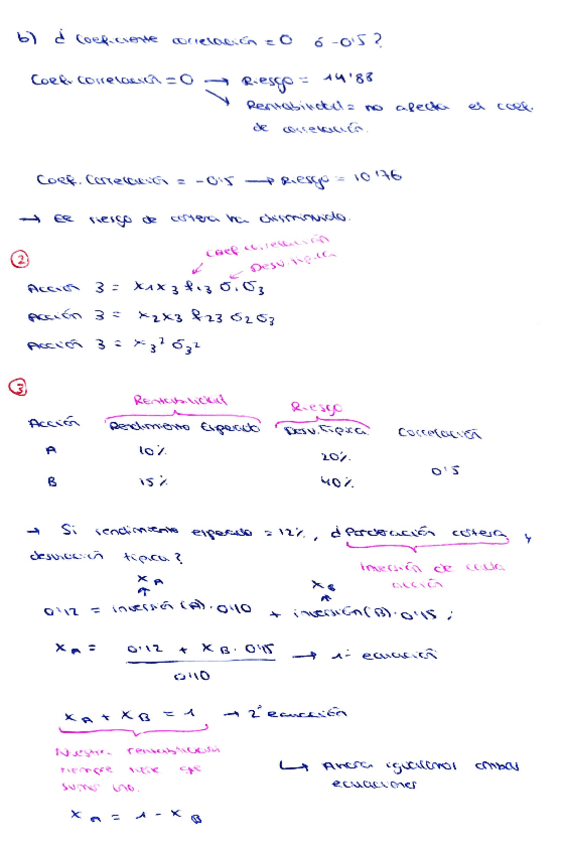 b) ¿ Coeficiente correlación = 0 ó -0'5 ?
Coef. correlación = 0 → Riesgo = 14'88
→ Rentabilidad = no afecta el coef.
de correlación.
Coef. Correlación = -0'5 → Riesgo = 10'76
→ El riesgo de cartera ha disminuido.
2
Coef correlación
Desv. típica
Acción 3 = x1x3 ρ13 σ1σ3
Acción 3 = x2x3 ρ23 σ2σ3
Acción 3 = x3² σ3²
3
Rentabilidad Riesgo
Acción Rendimiento Esperado Desv. Típica Correlación
A 10% 20%
0'5
B 15% 40%
→ Si rendimiento esperado = 12%, ¿ Ponderación cartera y
desviación típica ?
inversión de cada
acción
xA xB
0'12 = inversión (A) · 0'10 + inversión (B) · 0'15 ;
xA = 0'12 + xB · 0'15 → 1ª ecuación
0'10
xA + xB = 1 → 2ª ecuación
Nuestra rentabilidad
siempre tiene que
sumar uno.
↳ Ahora igualamos ambas
ecuaciones
xA = 1 - xB